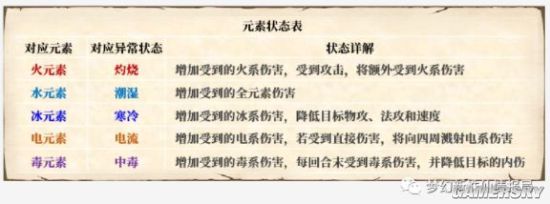 元素状态表
对应元素 对应异常状态 状态详解
火元素 灼烧 增加受到的火系伤害，受到攻击，将额外受到火系伤害
水元素 潮湿 增加受到的全元素伤害
冰元素 寒冷 增加受到的冰系伤害，降低目标物攻、法攻和速度
电元素 电流 增加受到的电系伤害，若受到直接伤害，将向四周溅射电系伤害
毒元素 中毒 增加受到的毒系伤害，每回合末受到毒系伤害，并降低目标的内伤
GAMERSKY